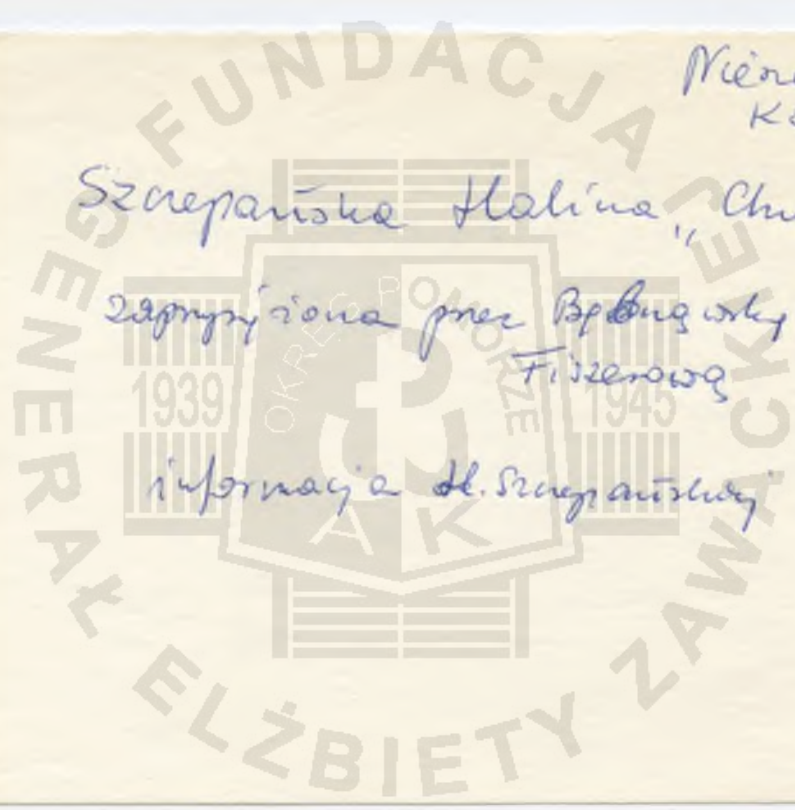 Szczepańska Halina „Chr
zaprzysiężona przez
Fiszerową
informacja H. Szczepańskiej
FUNDACJA GENERAŁ ELŻBIETY ZAWACKIEJ
OKRĘG POMORZE
1939 1945
AK